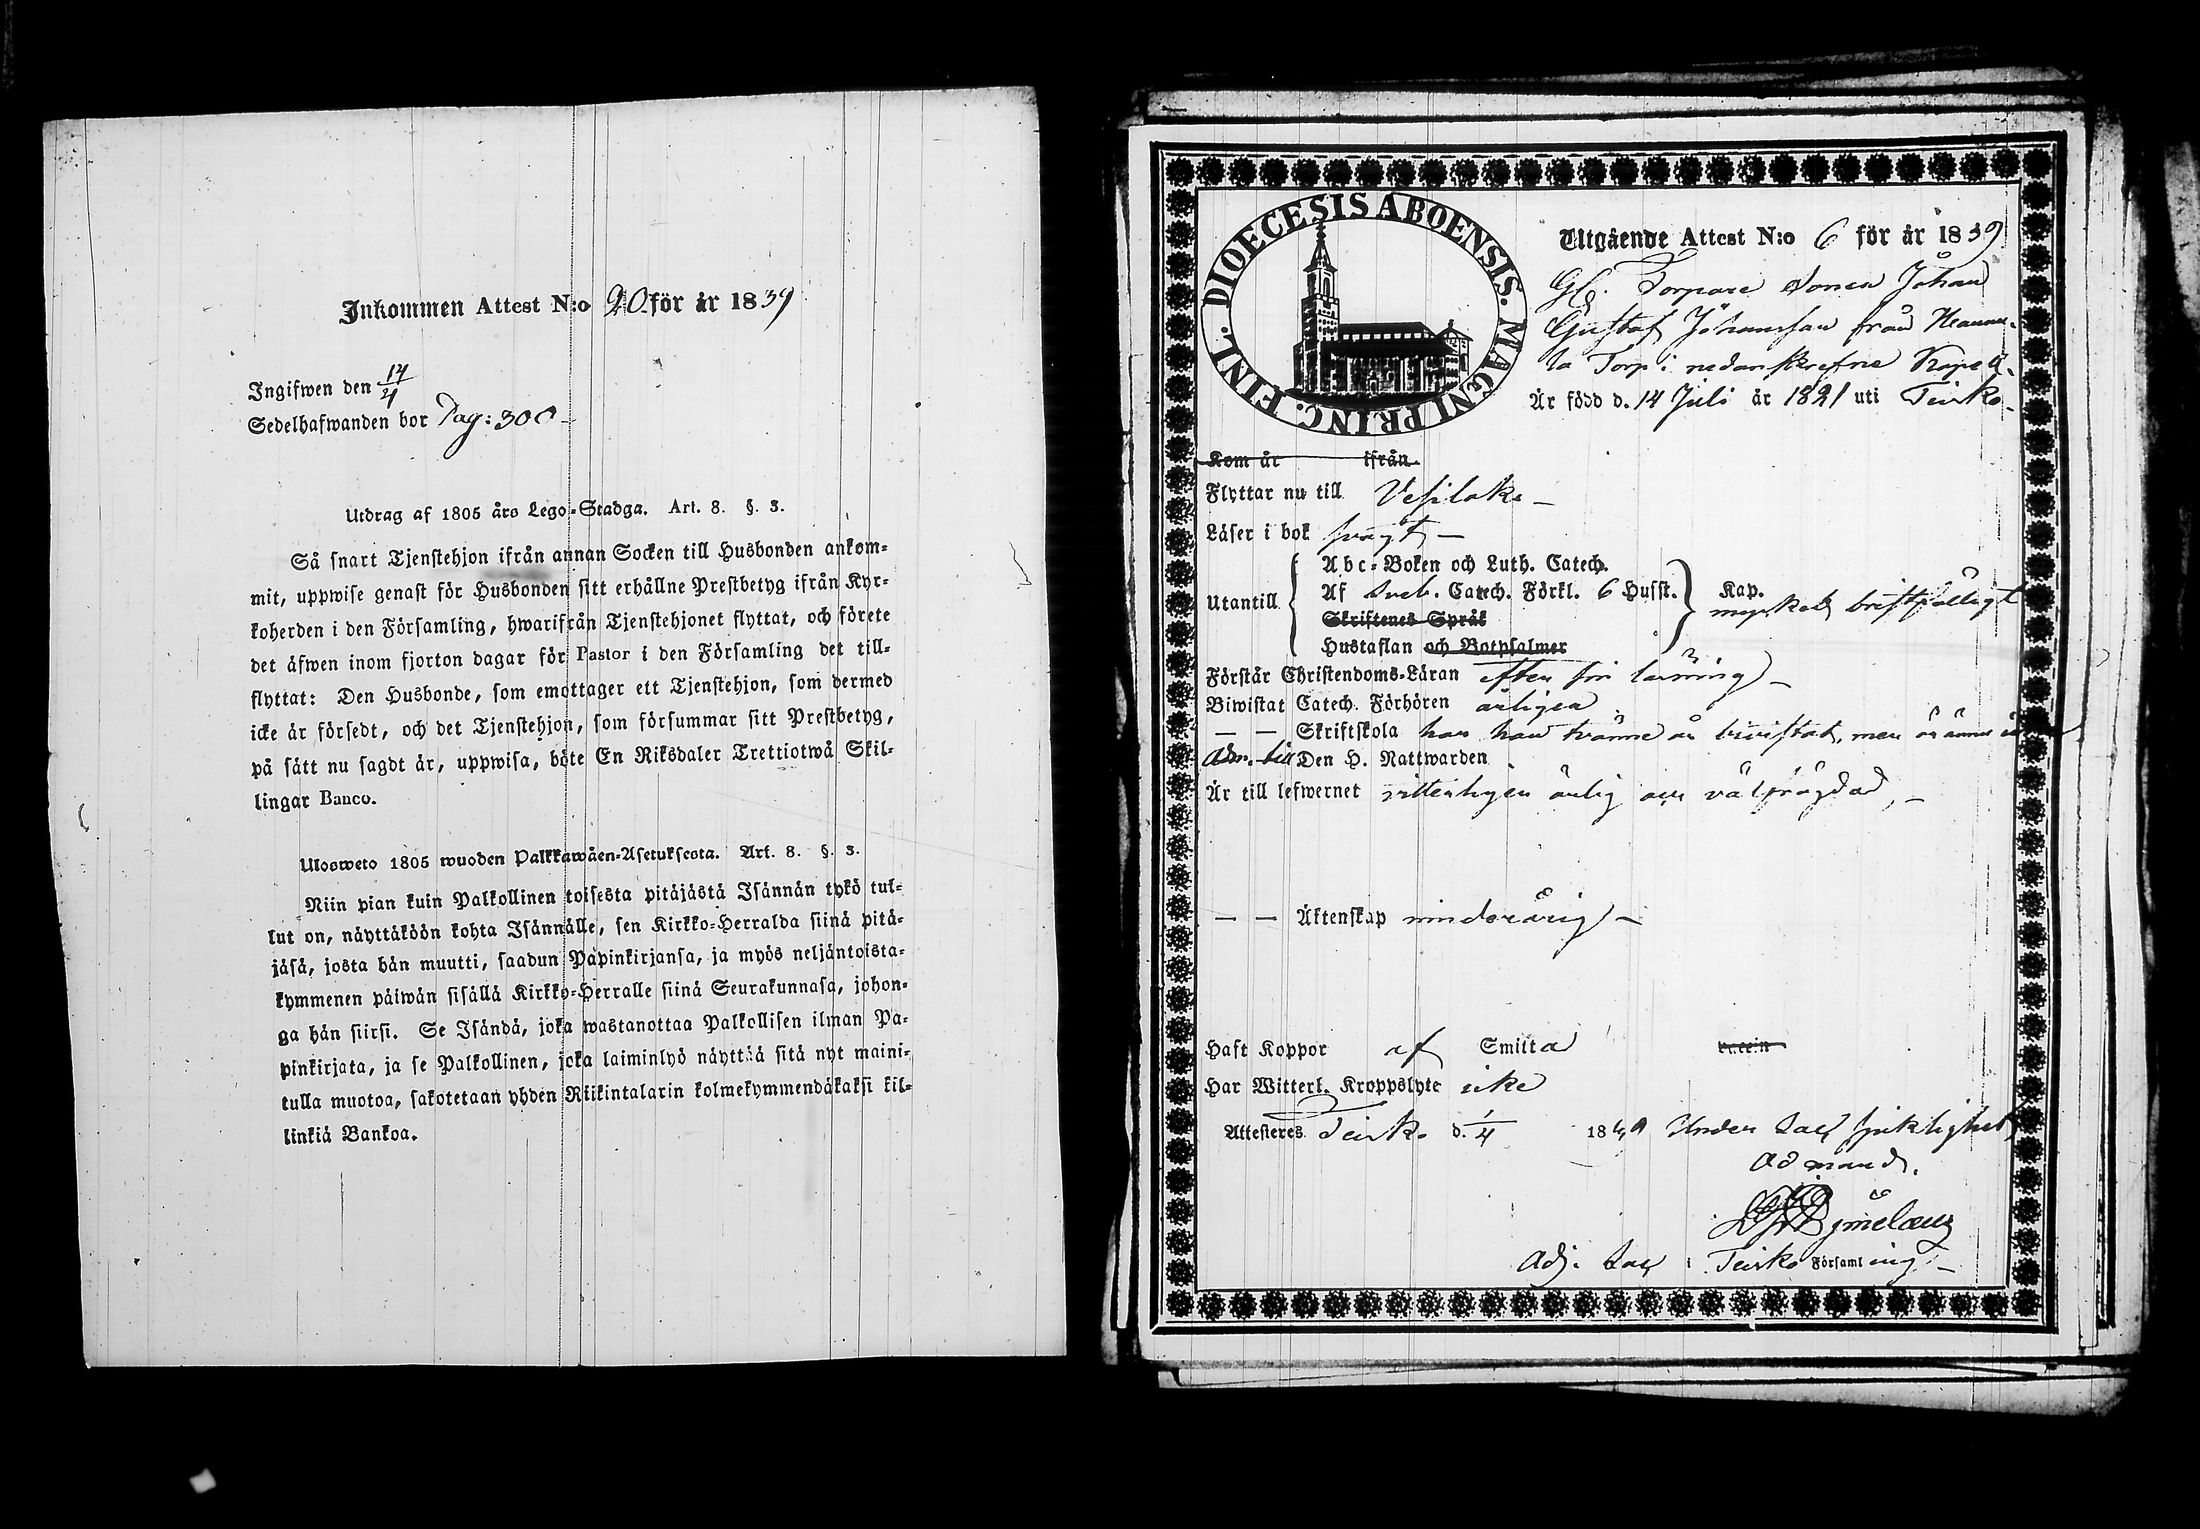 Inkommen Attest N:o 20 för år 1839
Ingifwen den 14/4
Sedelhafwanden bor Pag: 300
Utdrag af 1805 års Lego-Stadga. Art. 8. §. 3.
Så snart Tjenstehjon ifrån annan Socken till Husbonden ankom-
mit, uppwise genast för Husbonden sitt erhållne Prestbetyg ifrån Kyr-
koherden i den Församling, hwarifrån Tjenstehjonet flyttat, och förete
det äfwen inom fjorton dagar för Pastor i den Församling det till-
flyttat: Den Husbonde, som emottager ett Tjenstehjon, som dermed
icke är försedt, och det Tjenstehjon, som försummar sitt Prestbetyg,
på sätt nu sagdt är, uppwisa, böte En Riksdaler Trettiotwå Skil-
lingar Banco.
Ulosweto 1805 wuoden Palkkawäen-Asetuksesta. Art. 8. §. 3.
Niin pian kuin Palkollinen toisesta pitäjästä Isännän tykö tul-
lut on, näyttäköön kohta Isännälle, sen Kirkko-Herralda siinä pitä-
jäsä, josta hän muutti, saadun Papinkirjansa, ja myös neljäntoista-
kymmenen päiwän sisällä Kirkko-Herralle siinä Seurakunnasa, johon-
ga hän siirsi. Se Isändä, joka wastanottaa Palkollisen ilman Pa-
pinkirjata, ja se Palkollinen, joka laiminlyö näyttää sitä nyt maini-
tulla muotoa, sakotetaan yhden Riikintalarin kolmekymmendäkaksi kil-
linkiä Bankoa.
DIOECESIS ABOENSIS. MAGNI PRINC. FINL.
Utgående Attest N:o 6 för år 1839
Torpare Sonen Johan
Gustaf Johansson från
Torp i nedanskrefne Kapell.
Är född d. 14 Juli år 1821 uti Teisko
Kom år ifrån
Flyttar nu till Vesilaks
Läser i bok svagt
Abc-Boken och Luth. Catech.
Utantill Af Sveb. Catech. Förkl. 6 Hufst. Kap.
mycket bristfälligt
Skriftenes Språk
Hustaflan och Botpsalmer
Förstår Christendoms-Läran efter sin läsning
Biwistat Catech. Förhören årligen
— — Skriftskola har han tvänne år bivistat, men är ännu
Adm. till Den H. Nattwarden
Är till lefwernet vitterligen ärlig och välfrägdad,
— — Äktenskap minderårig
Haft Koppor af Smitta vaccin
Har Witterl. Kroppslyte icke
Attesteres Teisko d. 1/4 18 Under Sac
Adj. Sac. i Teisko Församling